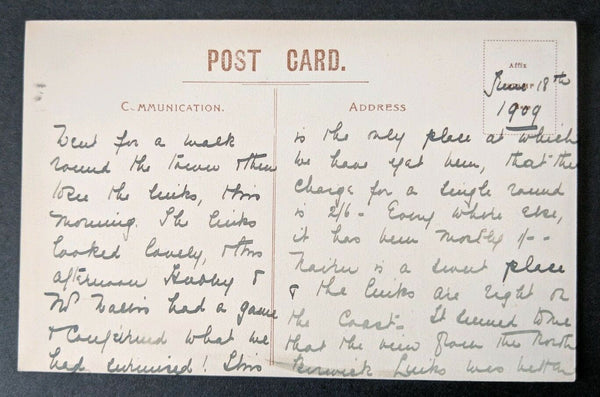 POST CARD.
Affix
June 18th
1909
COMMUNICATION.
ADDRESS
Went for a walk
round the town & then
over the links, this
morning. The links
looked lovely, & this
afternoon Hubby &
Mr had a game
& confirmed what we
had surmised! This
is the only place at which
we have yet been, that the
charge for a single round
is 2/6 - Every where else,
it has been mostly 1/- -
Nairn is a sweet place
& the links are right on
the Coast. It seemed to me
that the view from the North
Berwick Links was better